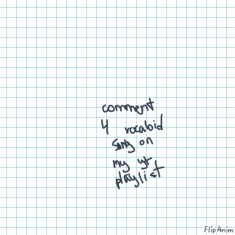 comment
4 vocaloid
song on
my yt
playlist
FlipAnim